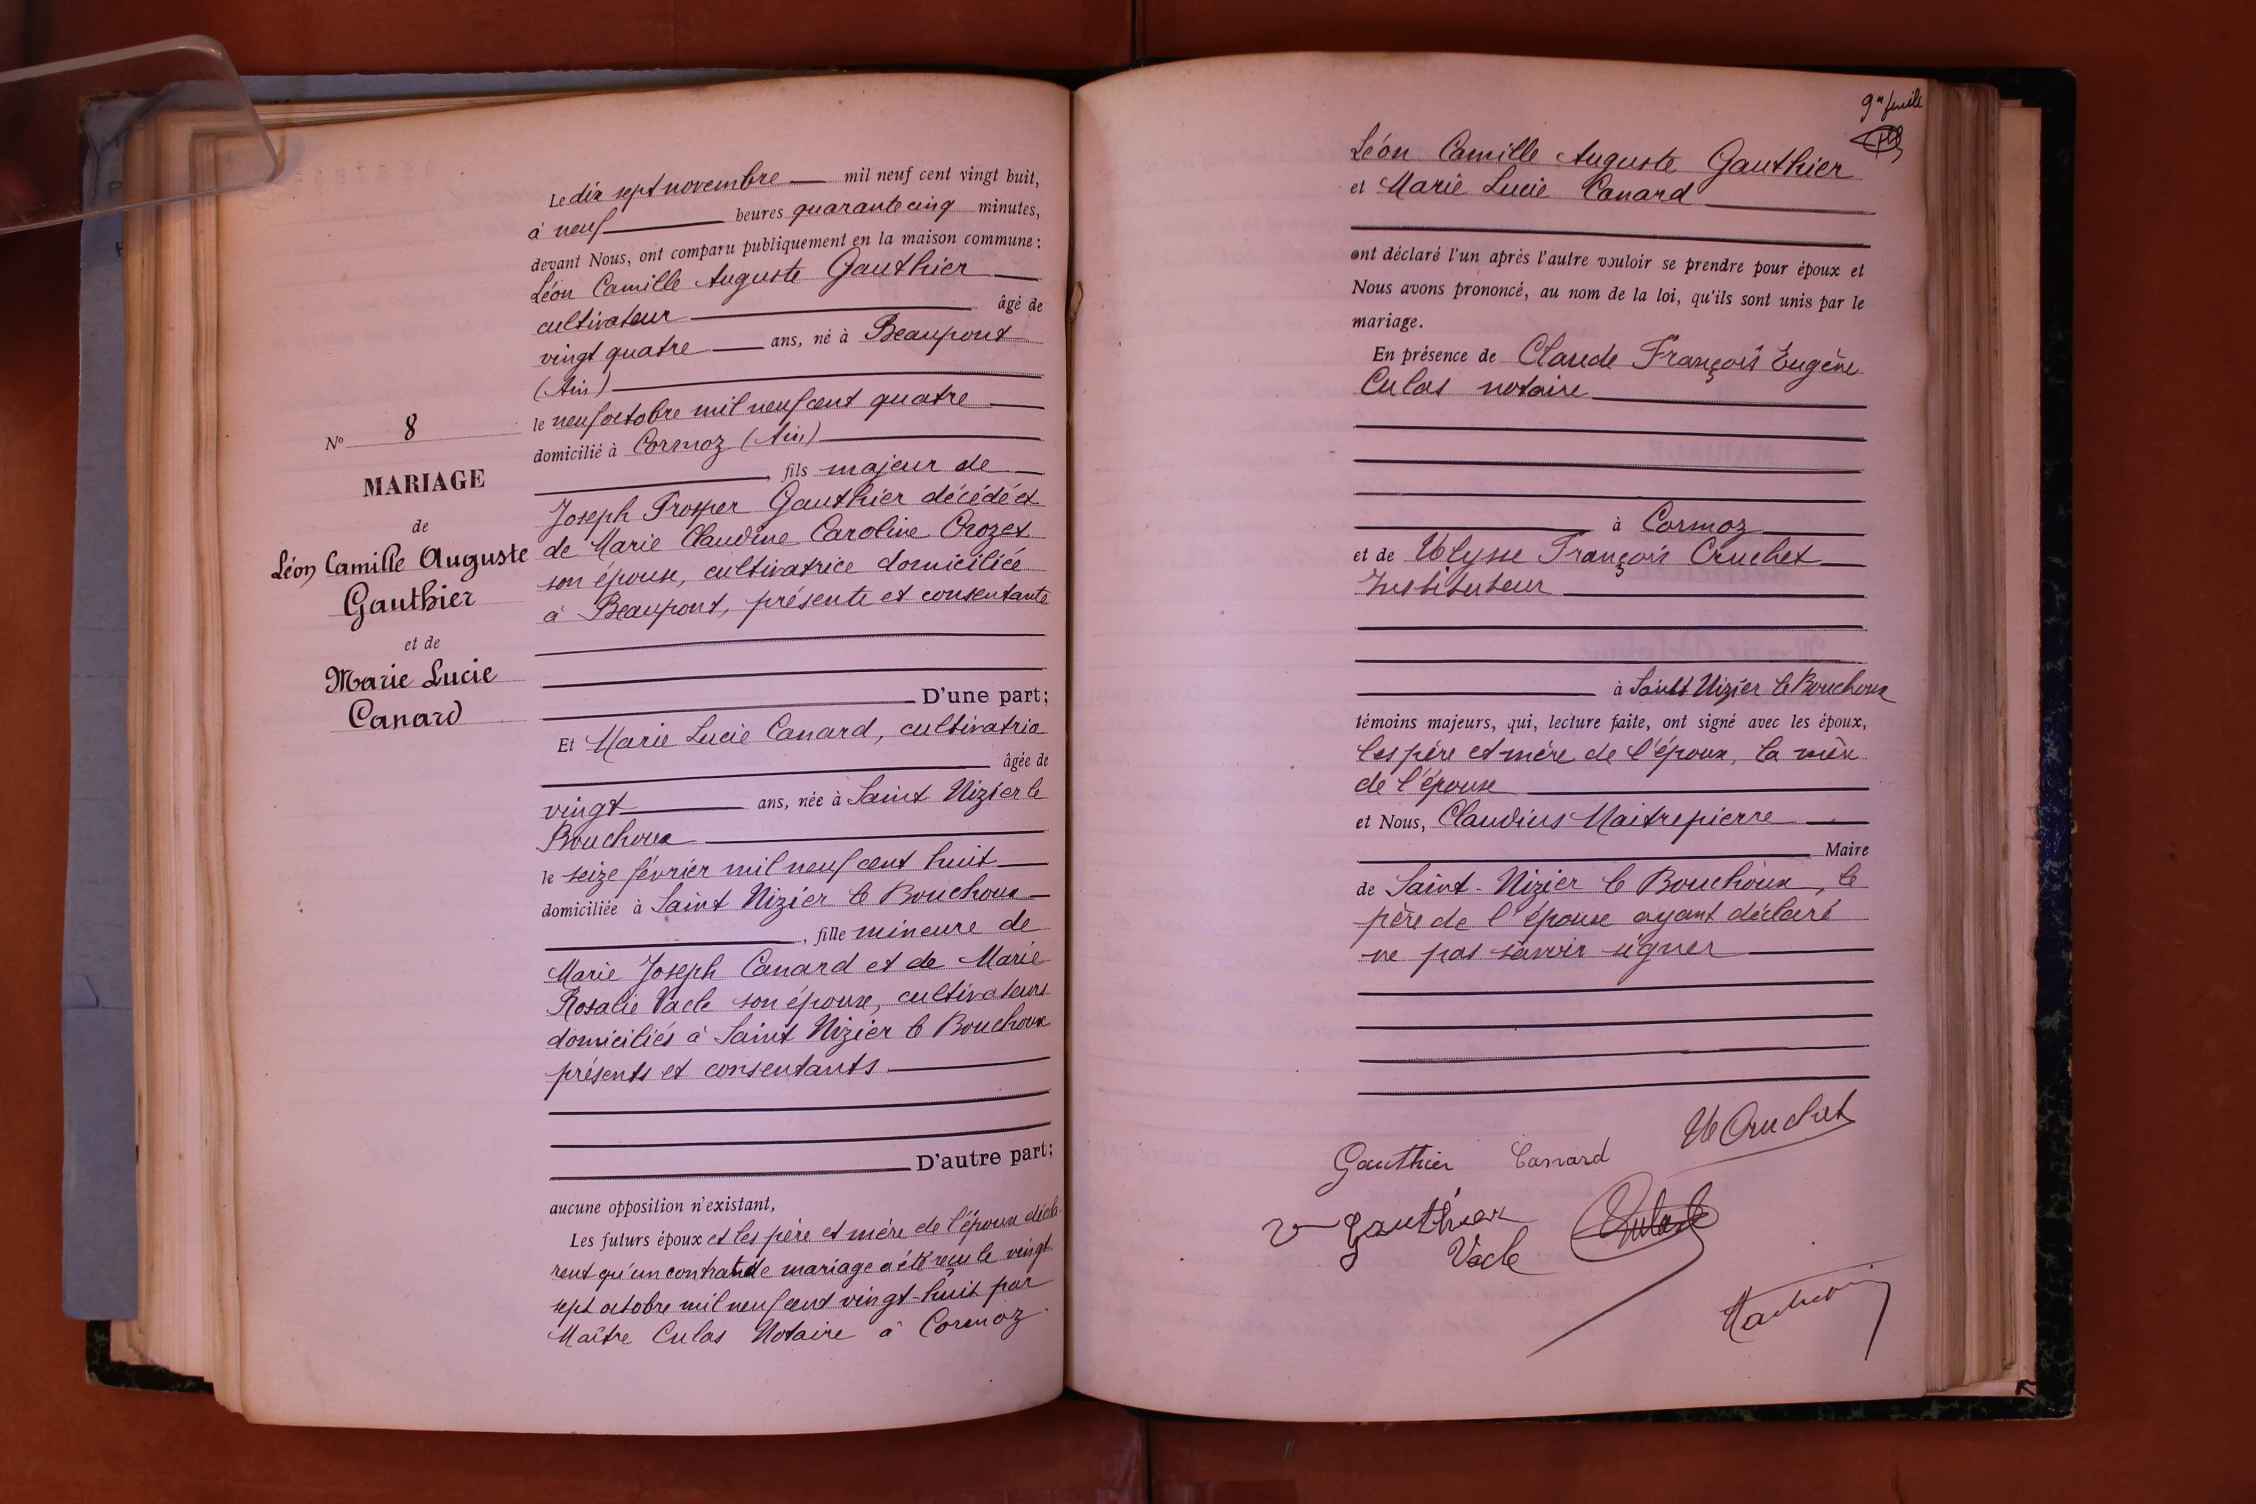 N° 8
MARIAGE
de
Léon Camille Auguste
Gauthier
et de
Marie Lucie
Canard
Le dix sept novembre mil neuf cent vingt huit,
à neuf heures quarante cinq minutes,
devant Nous, ont comparu publiquement en la maison commune :
Léon Camille Auguste Gauthier
cultivateur âgé de
vingt quatre ans, né à Beaupont
(Ain)
le neuf octobre mil neuf cent quatre
domicilié à Cormoz (Ain)
, fils majeur de
Joseph Prosper Gauthier décédé et
de Marie Claudine Caroline Crozet
son épouse, cultivatrice domiciliée
à Beaupont, présente et consentante
D'une part;
Et Marie Lucie Canard, cultivatrice
âgée de
vingt ans, née à Saint Nizier le
Bouchoux
le seize février mil neuf cent huit
domiciliée à Saint Nizier le Bouchoux
, fille mineure de
Marie Joseph Canard et de Marie
Rosalie Vacle son épouse, cultivateurs
domiciliés à Saint Nizier le Bouchoux
présents et consentants
D'autre part;
aucune opposition n'existant,
Les futurs époux et les père et mère de l'époux décla-
rent qu'un contrat de mariage a été reçu le vingt
sept octobre mil neuf cent vingt-huit par
Maître Culas Notaire à Cormoz.
9e feuille
Léon Camille Auguste Gauthier
et Marie Lucie Canard
ont déclaré l'un après l'autre vouloir se prendre pour époux et
Nous avons prononcé, au nom de la loi, qu'ils sont unis par le
mariage.
En présence de Claude François Eugène
Culas notaire
à Cormoz
et de Ulysse François Cruchet
Instituteur
à Saint Nizier le Bouchoux
témoins majeurs, qui, lecture faite, ont signé avec les époux,
les père et mère de l'époux, la mère
de l'épouse
et Nous, Claudius Maitrepierre
Maire
de Saint-Nizier le Bouchoux, le
père de l'épouse ayant déclaré
ne pas savoir signer
Gauthier Canard Ue Cruchet
Ve Gauthier
Vacle